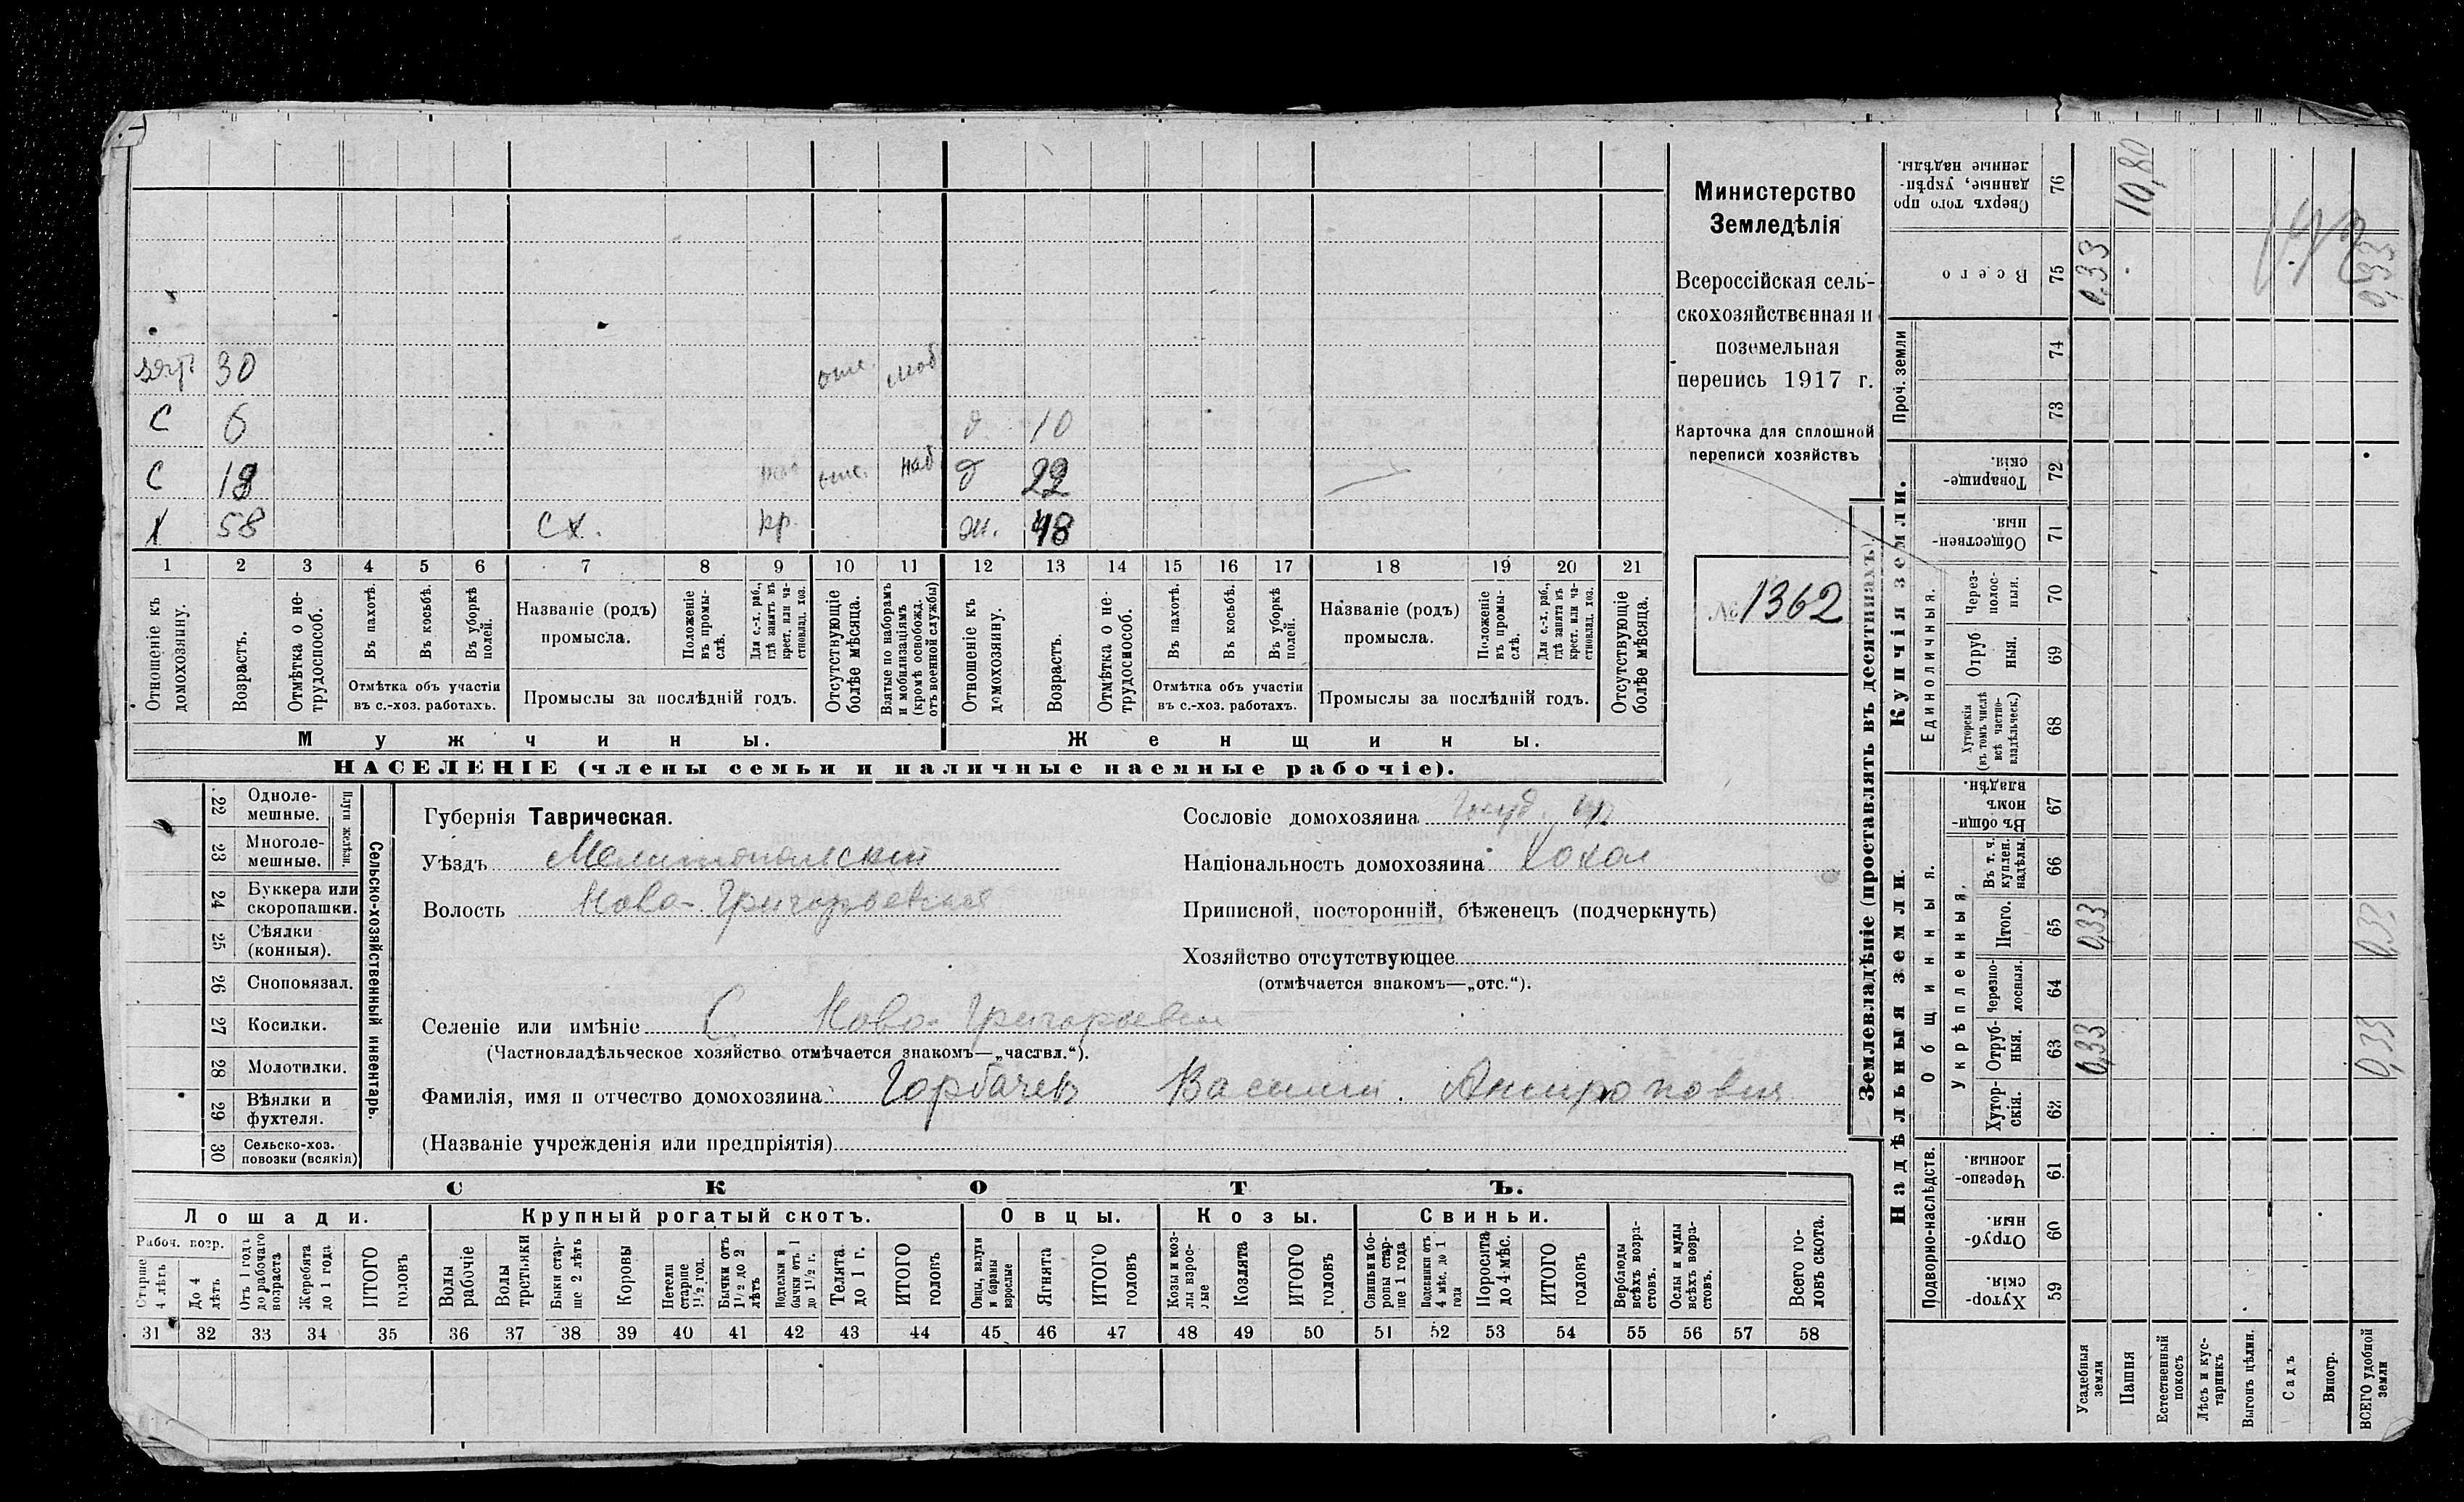 зять 30 отс. моб
С 6 д 10
С 19 отс. наб д 22
Х 58 сх. кр. ж. 48
1 2 3 4 5 6 7 8 9 10 11 12 13 14 15 16 17 18 19 20 21
Отношеніе къ домохозяину.
Возрастъ.
Отмѣтка о не-
трудоспособ.
Въ пахотѣ.
Въ косьбѣ.
Въ уборкѣ полей.
Отмѣтка объ участіи
въ с.-хоз. работахъ.
Названіе (родъ)
промысла.
Положеніе
въ промы-
слѣ.
Для с.-х. раб.,
гдѣ занятъ въ
крест. или ча-
стновлад. хоз.
Промыслы за послѣдній годъ.
Отсутствующіе
болѣе мѣсяца.
Взятые по наборамъ
и мобилизаціямъ
(кромѣ освобожд.
отъ военной службы)
Отношеніе къ
домохозяину.
Возрастъ.
Отмѣтка о не-
трудоспособ.
Въ пахотѣ.
Въ косьбѣ.
Въ уборкѣ
полей.
Отмѣтка объ участіи
въ с.-хоз. работахъ.
Названіе (родъ)
промысла.
Положеніе
въ промы-
слѣ.
Для с.-х. раб.,
гдѣ занята въ
крест. или ча-
стновлад. хоз.
Промыслы за послѣдній годъ.
Отсутствующіе
болѣе мѣсяца.
Мужчины.
Женщины.
НАСЕЛЕНІЕ (члены семьи и наличные наемные рабочіе).
Министерство
Земледѣлія
Всероссійская сель-
скохозяйственная и
поземельная
перепись 1917 г.
Карточка для сплошной
переписи хозяйствъ
№ 1362
22 Одноле-
мешные.
23 Многоле-
мешные.
Плуги желѣзн.
24 Буккера или
скоропашки.
25 Сѣялки
(конныя).
26 Сноповязал.
27 Косилки.
28 Молотилки.
29 Вѣялки и
фухтеля.
30 Сельско-хоз.
повозки (всякія)
Сельско-хозяйственный инвентарь.
Губернія Таврическая.
Уѣздъ Мелитопольскій
Волость Ново-Григорьевская
Селеніе или имѣніе С. Ново-Григорьевка
(Частновладѣльческое хозяйство отмѣчается знакомъ—„частвл.“).
Фамилія, имя и отчество домохозяина Горбачев Василий Антропович
(Названіе учрежденія или предпріятія)
Сословіе домохозяина Госуд. кр.
Національность домохозяина Хохол
Приписной, посторонній, бѣженецъ (подчеркнуть)
Хозяйство отсутствующее
(отмѣчается знакомъ—„отс.“).
СКОТЪ.
Лошади.
Крупный рогатый скотъ.
Овцы.
Козы.
Свиньи.
Рабоч. возр.
Старше
4 лѣтъ
До 4
лѣтъ
Отъ 1 года
до рабочаго
возраста
Жеребята
до 1 года
ИТОГО
головъ
Волы
рабочіе
Волы
третьяки
Быки стар-
ше 2 лѣтъ
Коровы
Нетели
старше
1½ год.
Бычки отъ
1½ до 2
лѣтъ
Подтелки и
бычки отъ 1
до 1½ г.
Телята
до 1 г.
ИТОГО
головъ
Овцы, валухи
и бараны
взрослые
Ягнята
ИТОГО
головъ
Козы и коз-
лы взрос-
лые
Козлята
ИТОГО
головъ
Свиньи и бо-
ровы стар-
ше 1 года
Подсвинки отъ
4 мѣс. до 1
года
Поросята
до 4 мѣс.
ИТОГО
головъ
Верблюды
всѣхъ возра-
стовъ.
Ослы и мулы
всѣхъ возра-
стовъ.
Всего го-
ловъ скота.
31 32 33 34 35 36 37 38 39 40 41 42 43 44 45 46 47 48 49 50 51 52 53 54 55 56 57 58
Землевладѣніе (проставлять въ десятинахъ).
Надѣльныя земли.
Купчія земли.
Проч. земли
Подворно-наслѣдств.
Общинныя.
Укрѣпленныя.
Единоличныя.
Хутор-
скія. 59
Отруб-
ныя. 60
Черезпо-
лосныя. 61
Хутор-
скія. 62
Отруб-
ныя. 63
Черезпо-
лосныя. 64
Итого. 65
Въ т. ч.
куплен.
надѣлы. 66
Въ общи-
номъ
владѣн. 67
Хуторскія
(въ томъ числѣ
всѣ частно-
владѣльческ.) 68
Отруб
ныя. 69
Через-
полос-
ныя. 70
Обществен-
ныя. 71
Товарище-
скія. 72
73
74
Всего 75
Сверхъ того про
данные, укрѣп-
ленные надѣлы. 76
Усадебныя
земли 0,33 0,33 0,33
Пашня 10,80
Естественный
покосъ
Лѣсъ и кус-
тарникъ
Выгонъ цѣлин.
Садъ
Виногр.
ВСЕГО удобной
земли 0,33 0,33 0,33